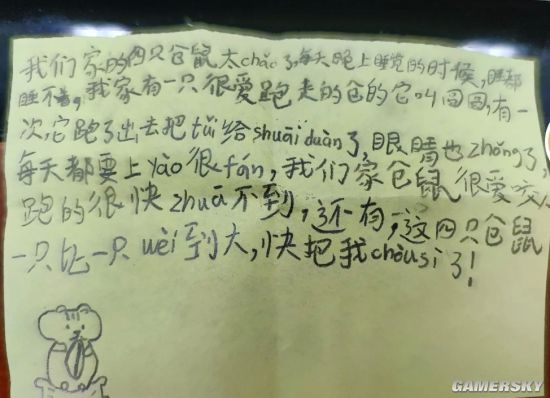 我们家的四只仓鼠太chǎo了,每天晚上睡觉的时候,睡都
睡不着。我家有一只很爱跑走的仓的它叫圆圆,有一
次,它跑了出去把tuǐ给shuāi duàn了,眼睛也zhǒng了,
每天都要上yào很fán,我们家仓鼠很爱咬人
跑的很快zhuā不到,还有,这四只仓鼠
一只比一只wèi到大,快把我chòu sǐ了!
GAMERSKY